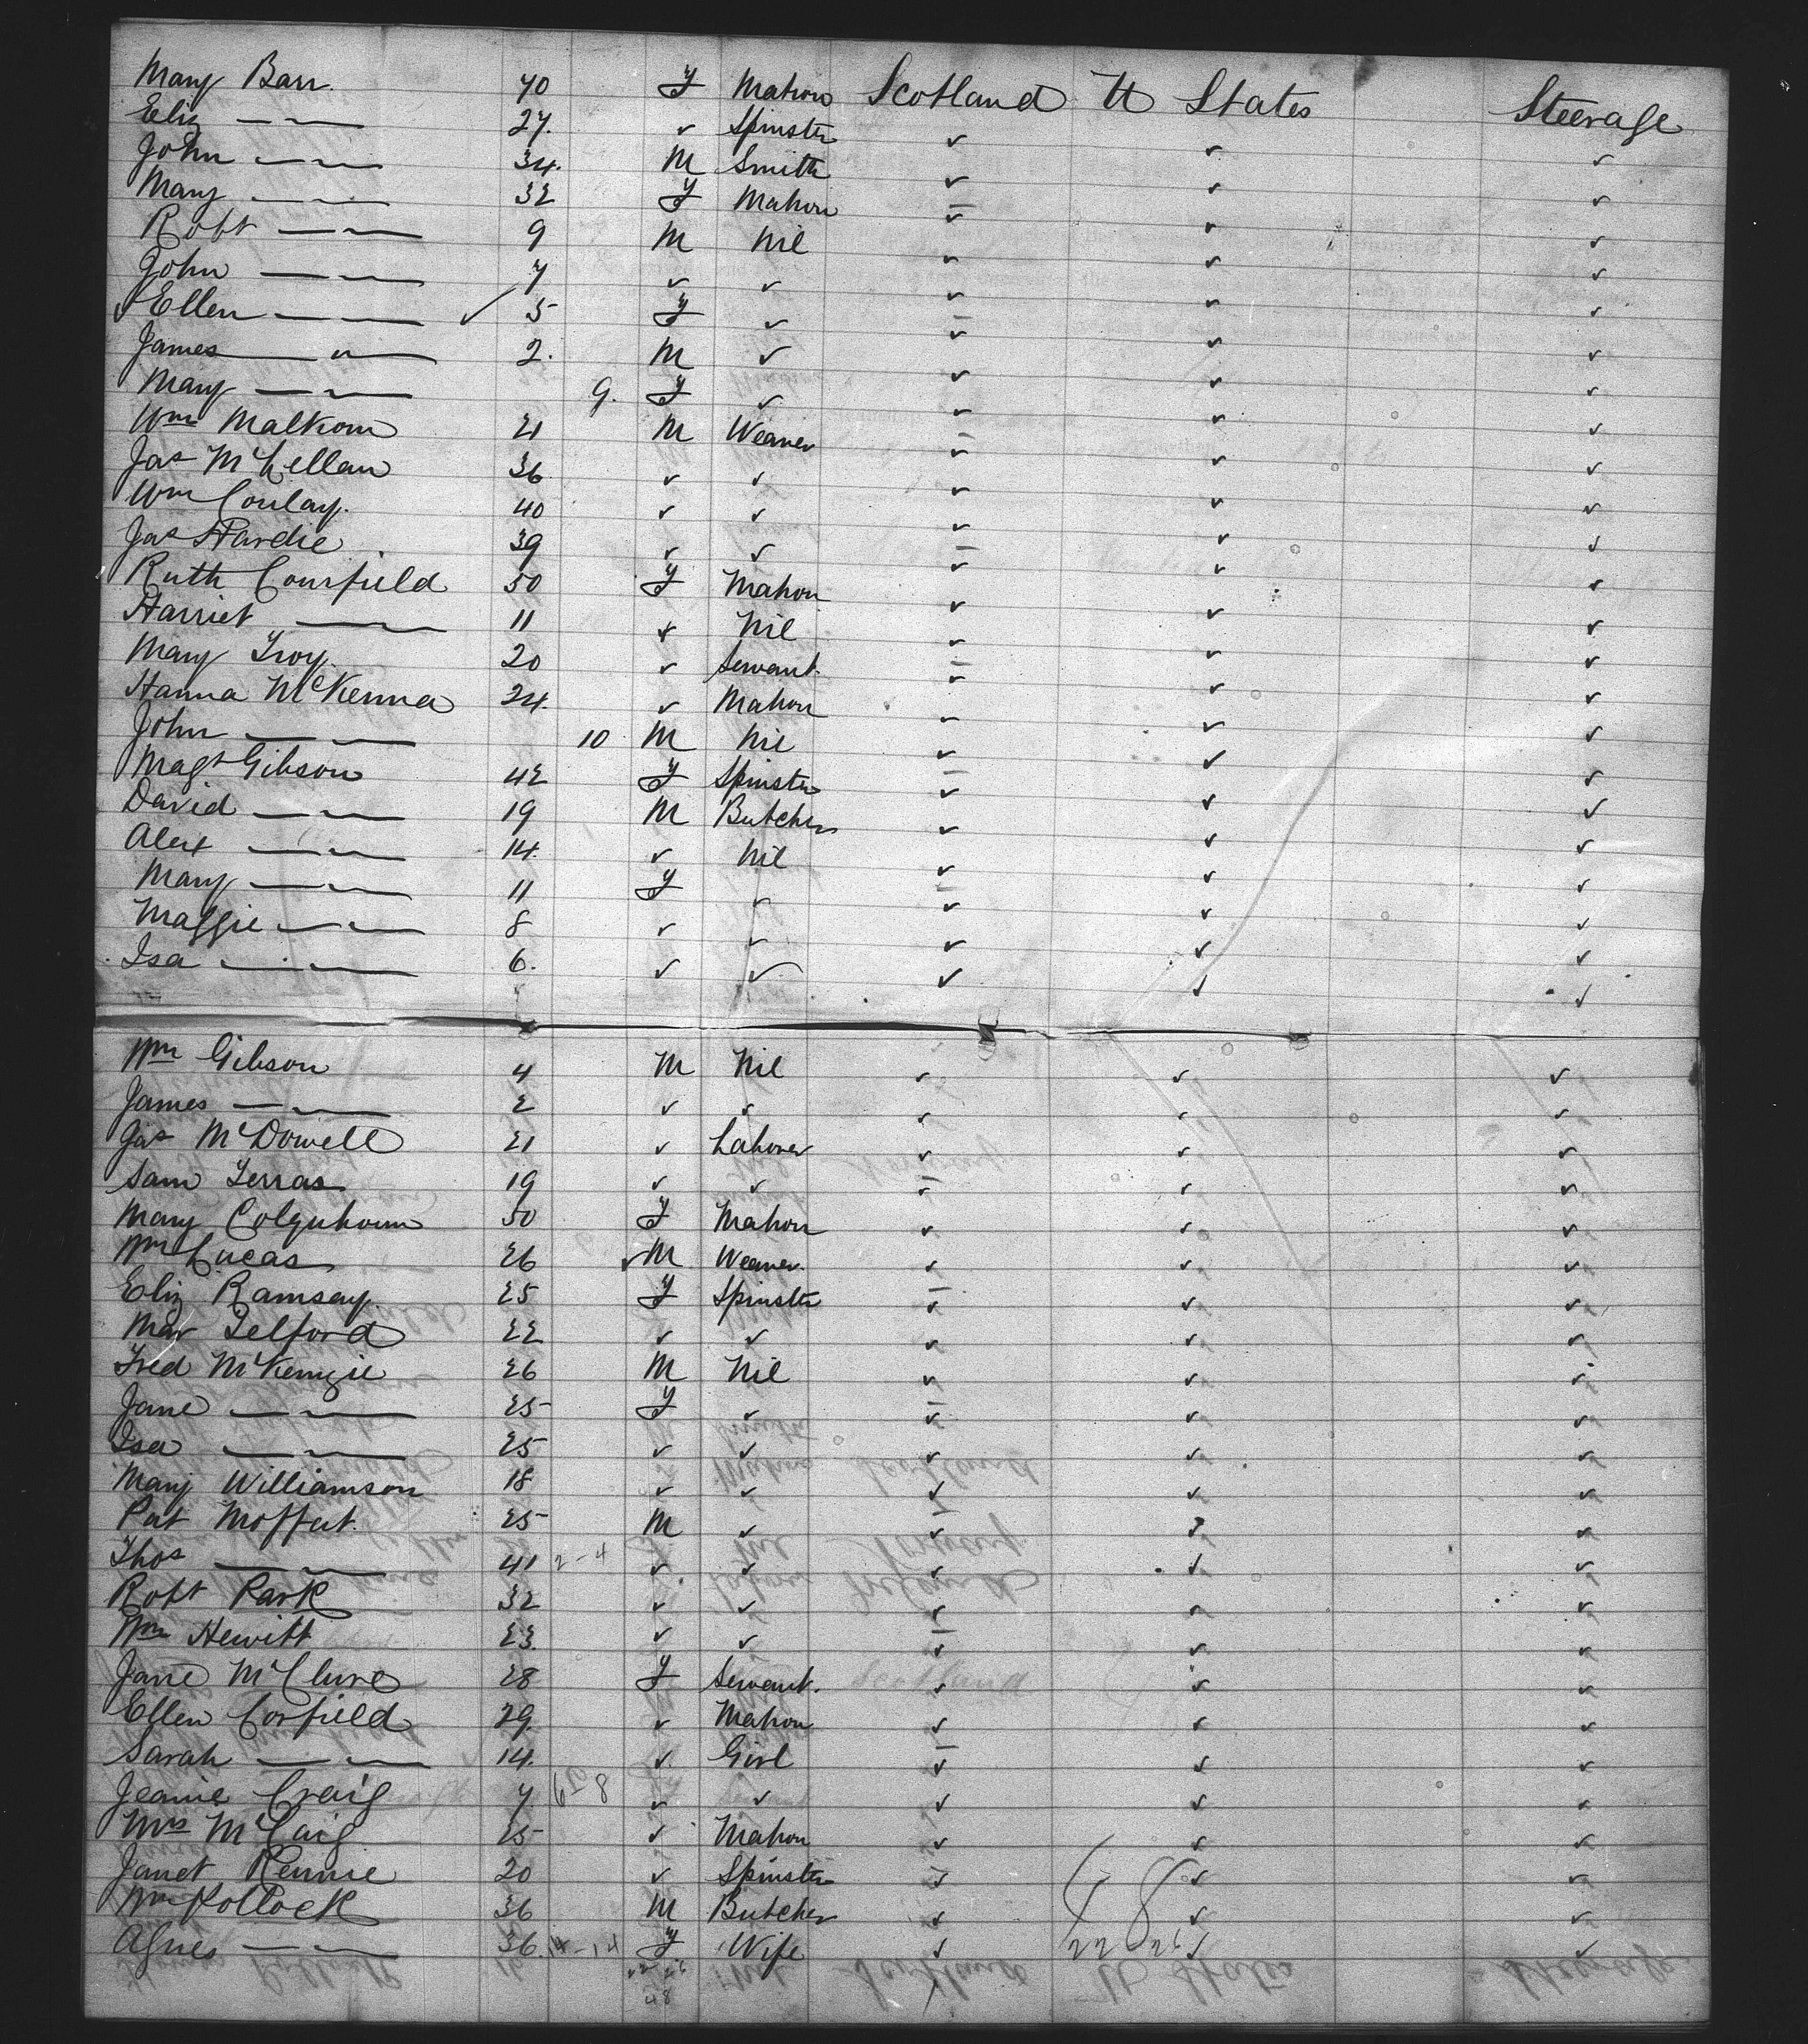 Mary Barr. 70 F Matron Scotland U States Steerage
Eliz —〃— 27. ✓ Spinster ✓ ✓ ✓
John —〃— 34. M Smith ✓ ✓ ✓
Mary —〃— 32 F Matron ✓ ✓ ✓
Robt —〃— 9 M Nil ✓ ✓ ✓
John —〃— 7 ✓ ✓ ✓ ✓ ✓
✓ Ellen —〃— ✓ 5 F ✓ ✓ ✓ ✓
James —〃— 2. M ✓ ✓ ✓ ✓
Mary —〃— 9. F ✓ ✓ ✓ ✓
Wm Malkom 21 M Weaver ✓ ✓ ✓
Jas McLellan 36 ✓ ✓ ✓ ✓ ✓
Wm Conlay. 40 ✓ ✓ ✓ ✓ ✓
Jas Hardie 39 ✓ ✓ ✓ ✓ ✓
Ruth Courfield 50 F Matron ✓ ✓ ✓
Harriet —〃— 11 ✓ Nil ✓ ✓ ✓
Mary Troy. 20 ✓ Servant. ✓ ✓ ✓
Hanna McKenna 24. ✓ Matron ✓ ✓ ✓
John —〃— 10 M Nil ✓ ✓ ✓
Magt Gibson 42 F Spinster ✓ ✓ ✓
David —〃— 19 M Butcher ✓ ✓ ✓
Alex —〃— 14. ✓ Nil ✓ ✓ ✓
Mary —〃— 11 F ✓ ✓ ✓ ✓
Maggie —〃— 8 ✓ ✓ ✓ ✓ ✓
Isa —〃— 6. ✓ ✓ ✓ ✓ ✓
Wm Gibson 4 M Nil ✓ ✓ ✓
James —〃— 2 ✓ ✓ ✓ ✓ ✓
Jas McDowell 21 ✓ Labourer ✓ ✓ ✓
Sam Ferras 19 ✓ ✓ ✓ ✓ ✓
Mary Colquhoun 50 F Matron ✓ ✓ ✓
Wm Lucas 26 ✓ M Weaver. ✓ ✓ ✓
Eliz Ramsay. 25 F Spinster ✓ ✓ ✓
Mar Telford 22 ✓ ✓ ✓ ✓ ✓
Fred McKenzie 26 M Nil ✓ ✓ ✓
Jane —〃— 25 F ✓ ✓ ✓ ✓
Isa —〃— 25 ✓ ✓ ✓ ✓ ✓
Mary Williamson 18 ✓ ✓ ✓ ✓ ✓
Pat Moffat. 25 M ✓ ✓ ✓ ✓
Thos —〃— 41 2-4 ✓ ✓ ✓ ✓ ✓
Robt Park 32 ✓ ✓ ✓ ✓ ✓
Wm Hewitt 23. ✓ ✓ ✓ ✓ ✓
Jane McClure 28 F Servant. ✓ ✓ ✓
Ellen Corfield 29 ✓ Matron ✓ ✓ ✓
Sarah —〃— 14. ✓ Girl ✓ ✓ ✓
Jeanie Craig 7 6-8 ✓ ✓ ✓ ✓ ✓
Mrs McCaig 25 ✓ Matron ✓ ✓ ✓
Janet Rennie 20 ✓ Spinster ✓ ✓ ✓
Wm Pollock 36 M Butcher ✓ 48 ✓ ✓
Agnes —〃— 36. 14-14 F Wife ✓ 22 26 ✓ ✓
22 26
48